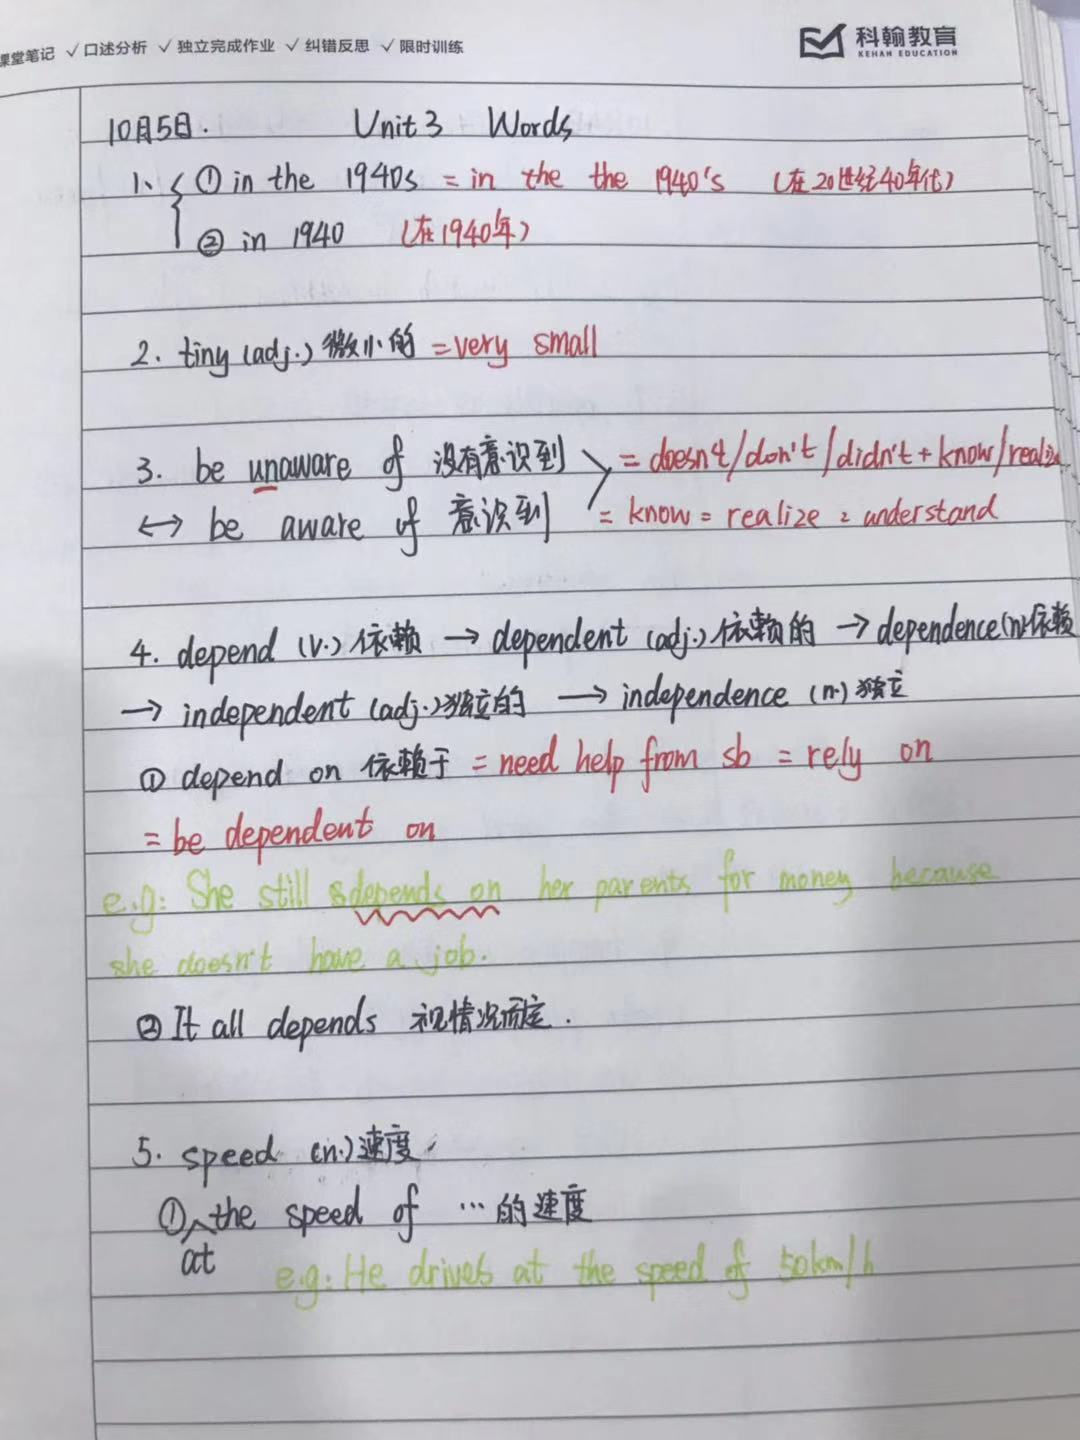 课堂笔记 ✓口述分析 ✓独立完成作业 ✓纠错反思 ✓限时训练
科翰教育
KEHAN EDUCATION
10月5日. Unit 3 Words
1、① in the 1940s = in the the 1940's (在20世纪40年代)
② in 1940 (在1940年)
2. tiny (adj.) 微小的 = very small
3. be unaware of 没有意识到 = doesn't/don't/didn't + know/realize
↔ be aware of 意识到 = know = realize = understand
4. depend (v.) 依赖 → dependent (adj.) 依赖的 → dependence (n.) 依赖
→ independent (adj.) 独立的 → independence (n.) 独立
① depend on 依赖于 = need help from sb = rely on
= be dependent on
e.g: She still depends on her parents for money because
she doesn't have a job.
② It all depends 视情况而定.
5. speed (n.) 速度
① at the speed of … 的速度
e.g: He drives at the speed of 50km/h